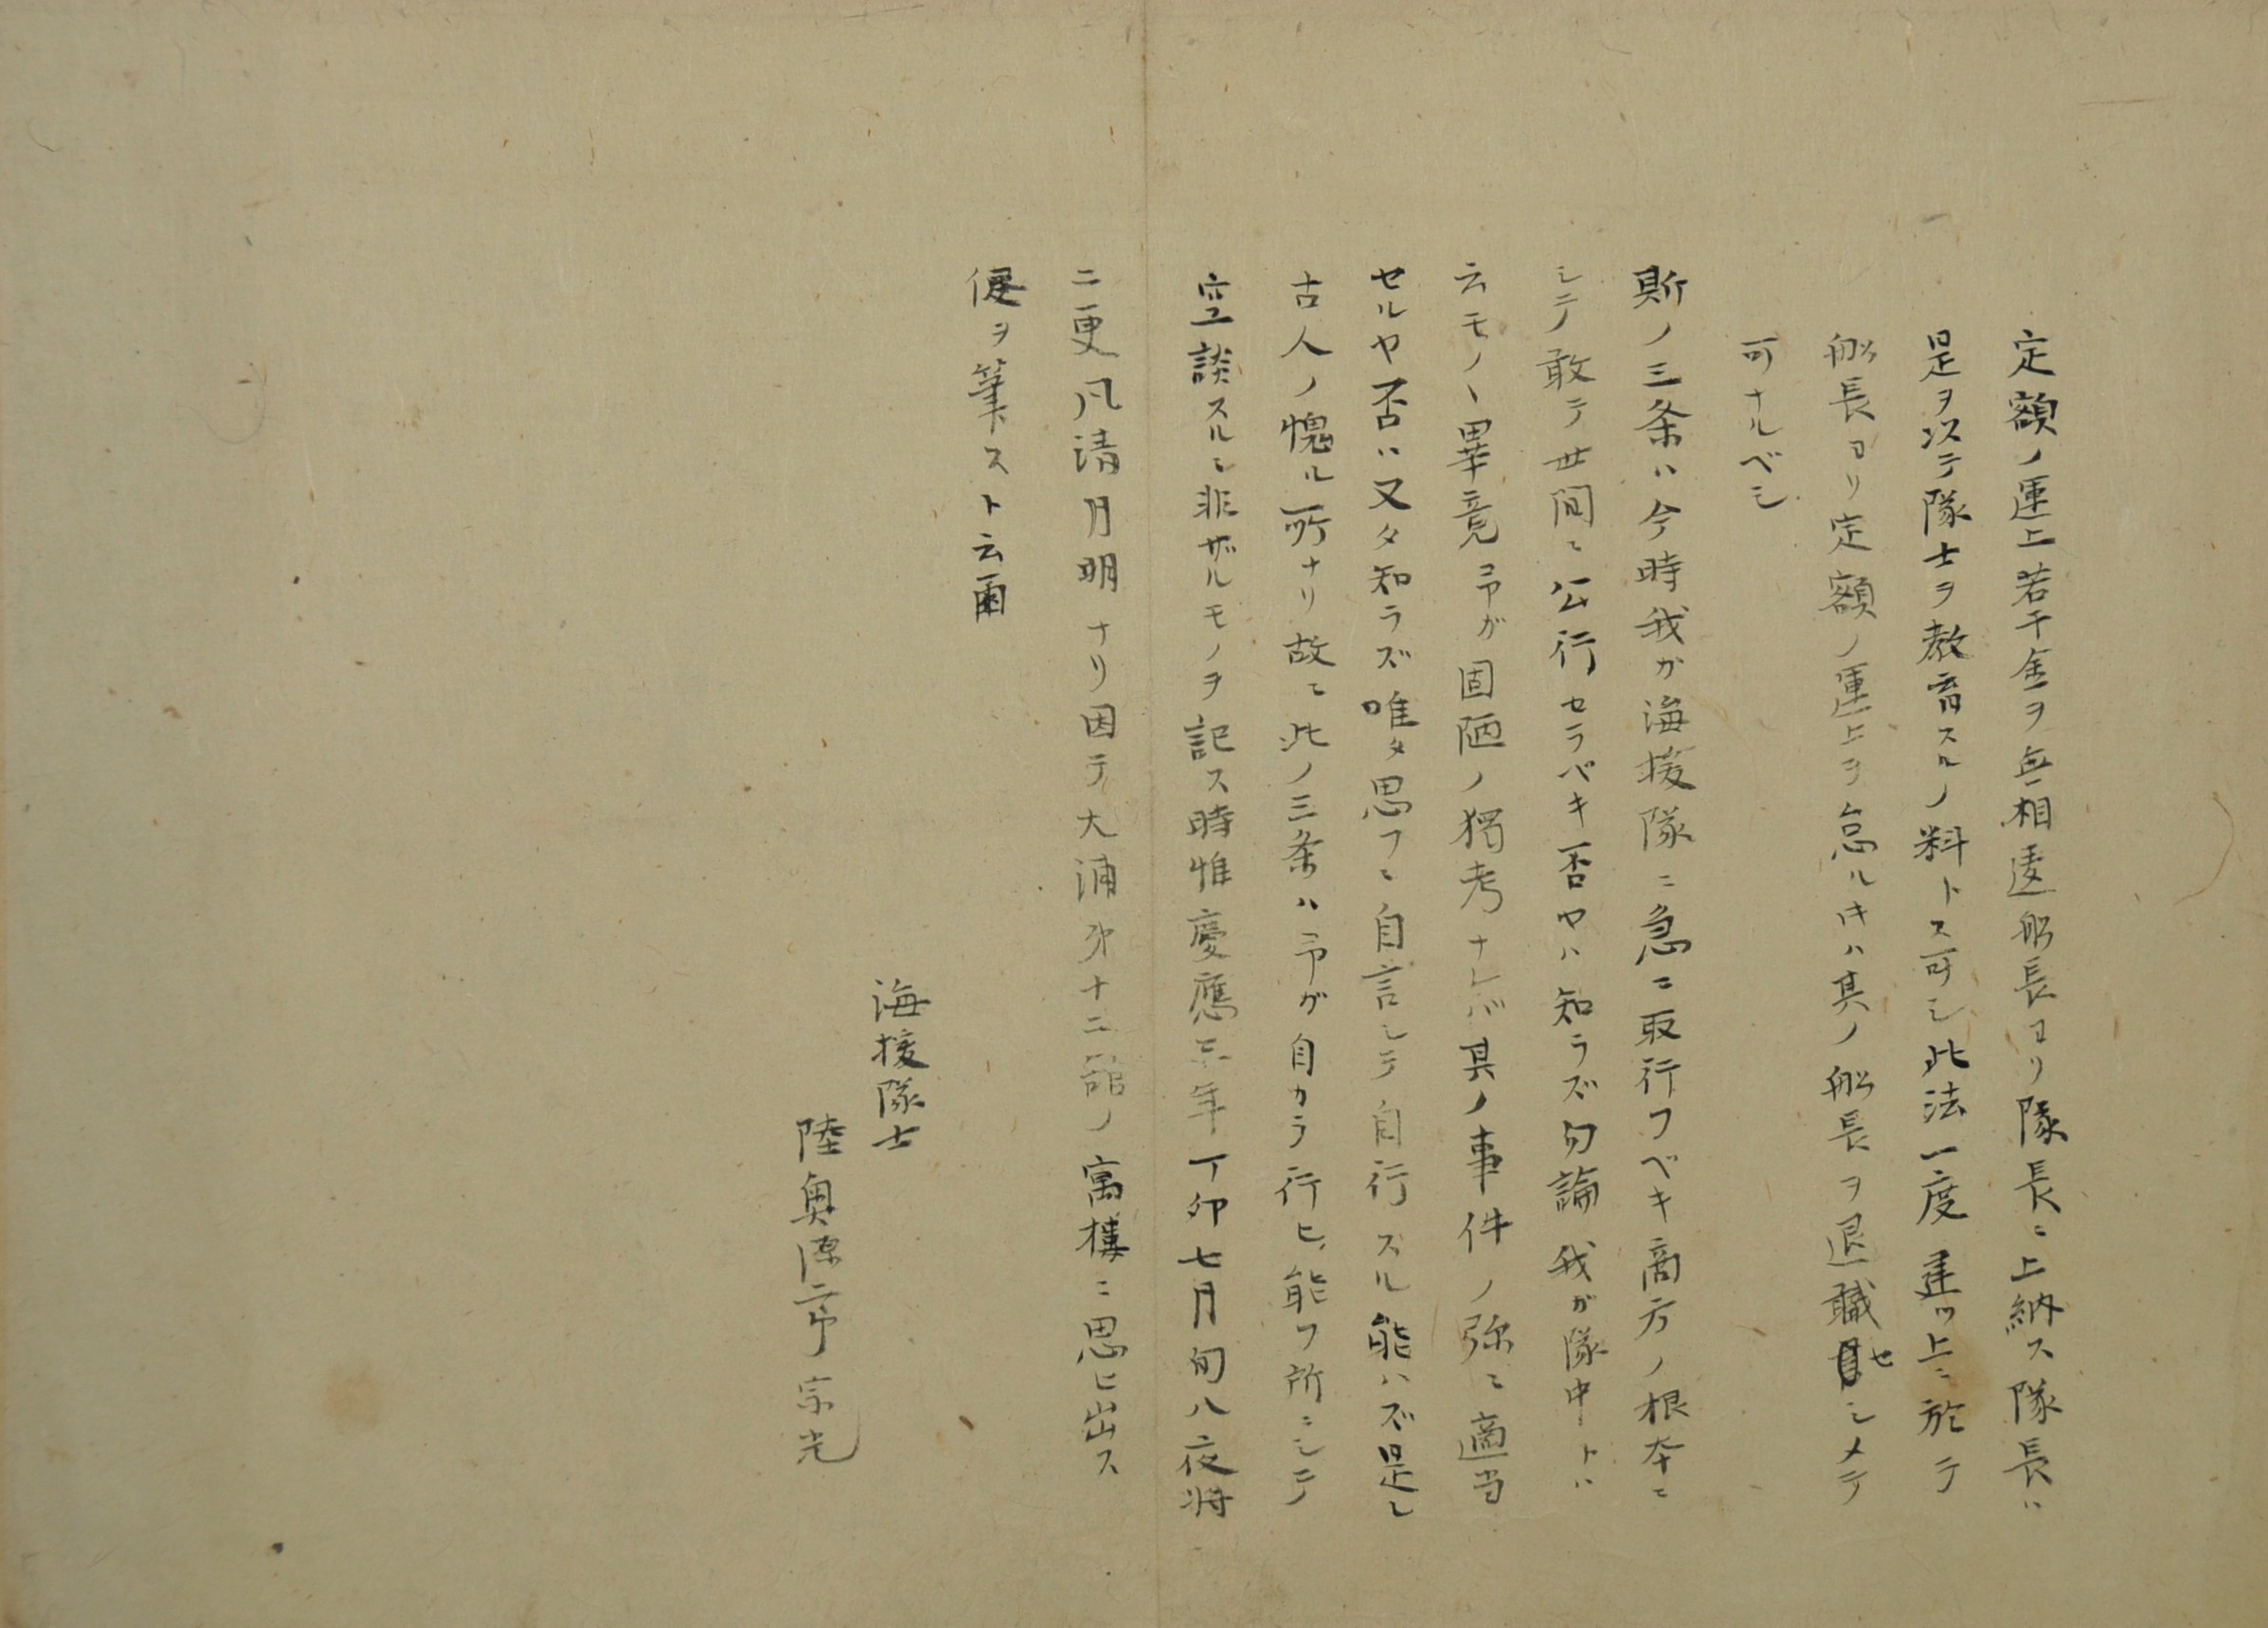 定額ノ運上若干金ヲ無相違船長ヨリ隊長ニ上納ス隊長ハ
是ヲ以テ隊士ヲ教育スルノ料トス可シ此法一度建ツ上ニ於テ
船長ヨリ定額ノ運上ヲ怠ルキハ其ノ船長ヲ退職セシメテ
可ナルベシ
斯ノ三条ハ今時我カ海援隊ニ急ニ取行フベキ商方ノ根本ニ
シテ敢テ世間ニ公行セラベキ否ヤハ知ラズ勿論我ガ隊中トハ
云モノヽ畢竟予ガ固陋ノ獨考ナレバ其ノ事件ノ弥ニ適当
セルヤ否ハ又タ知ラズ唯タ思フニ自言シテ自行スル能ハズ是レ
古人ノ愧ル所ナリ故ニ此ノ三条ハ予ガ自カラ行ヒ能フ所ニシテ
空談スルニ非ザルモノヲ記ス時惟慶應三年丁卯七月旬八夜将
二更凡清月明ナリ因テ大浦第十二舘ノ寓樓ニ思ヒ出ス
侭ヲ筆スト云爾
海援隊士
陸奥源二郎宗光